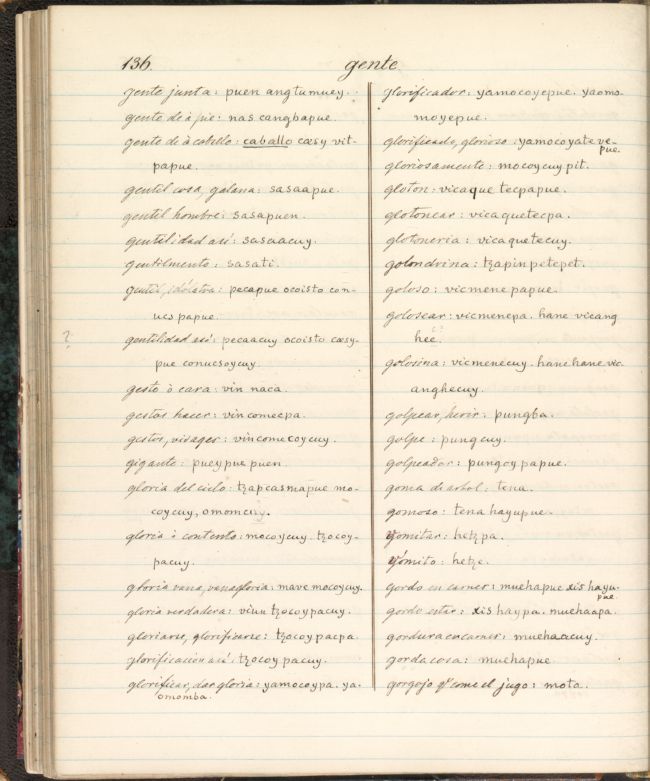 136.
gente
gente junta: puen angtumuey.
gente de à pie: nas cangbapue.
gente de à caballo: caballo cæsy vit-
papue.
gentil cosa, galana: sasaapue.
gentil hombre: sasapuen.
gentilidad así: sasaacuy.
gentilmente: sasati.
gentil, idólatra: pecapue ocoisto con-
ucs papue.
?
gentilidad así: pecaacuy ocoisto cæsy-
pue conucsoycuy.
gesto ò cara: vin naca.
gestos hacer: vincomecpa.
gestos, visages: vincomecoycuy.
gigante: pueypue puen
gloria del cielo: tzapcasmapue mo-
coycuy, omoncuy.
gloria ò contento: mocoycuy. tzocoy-
pacuy.
gloria vana, vanagloria: mave mocoycuy.
gloria verdadera: viun tzocoypacuy.
gloriarse, glorificarse: tzocoy pacpa.
glorificacion así: tzocoy pacuy.
glorificar, dar gloria: yamocoypa. ya-
omomba.
glorificador: yamocoyepue. yaomo-
moyepue.
glorificado, glorioso: yamocoyate ve-
pue.
gloriosamente: mocoycuy pit.
gloton: vicaque tecpapue.
glotonear: vicaquetecpa.
glotoneria: vicaquetecuy.
golondrina: tzapin petepet.
goloso: vicmenepapue.
goloscar: vicmencpa. hane vicang
hec.
golosina: vicmenecuy. hanehane vic.
anghecuy.
golpear, herir: pungba.
golpe: pungcuy.
golpeador: pungoypapue.
goma de arbol: tena.
gomoso: tena hayupue.
vomitar: hetzpa.
vómito: hetze.
gordo en carnes: muehapue xis hayu-
pue.
gordo estar: xis haypa. muehaapa.
gordura en carnes: muehaacuy.
gorda cosa: muehapue
gorgojo qᵉ come el jugo: mota.